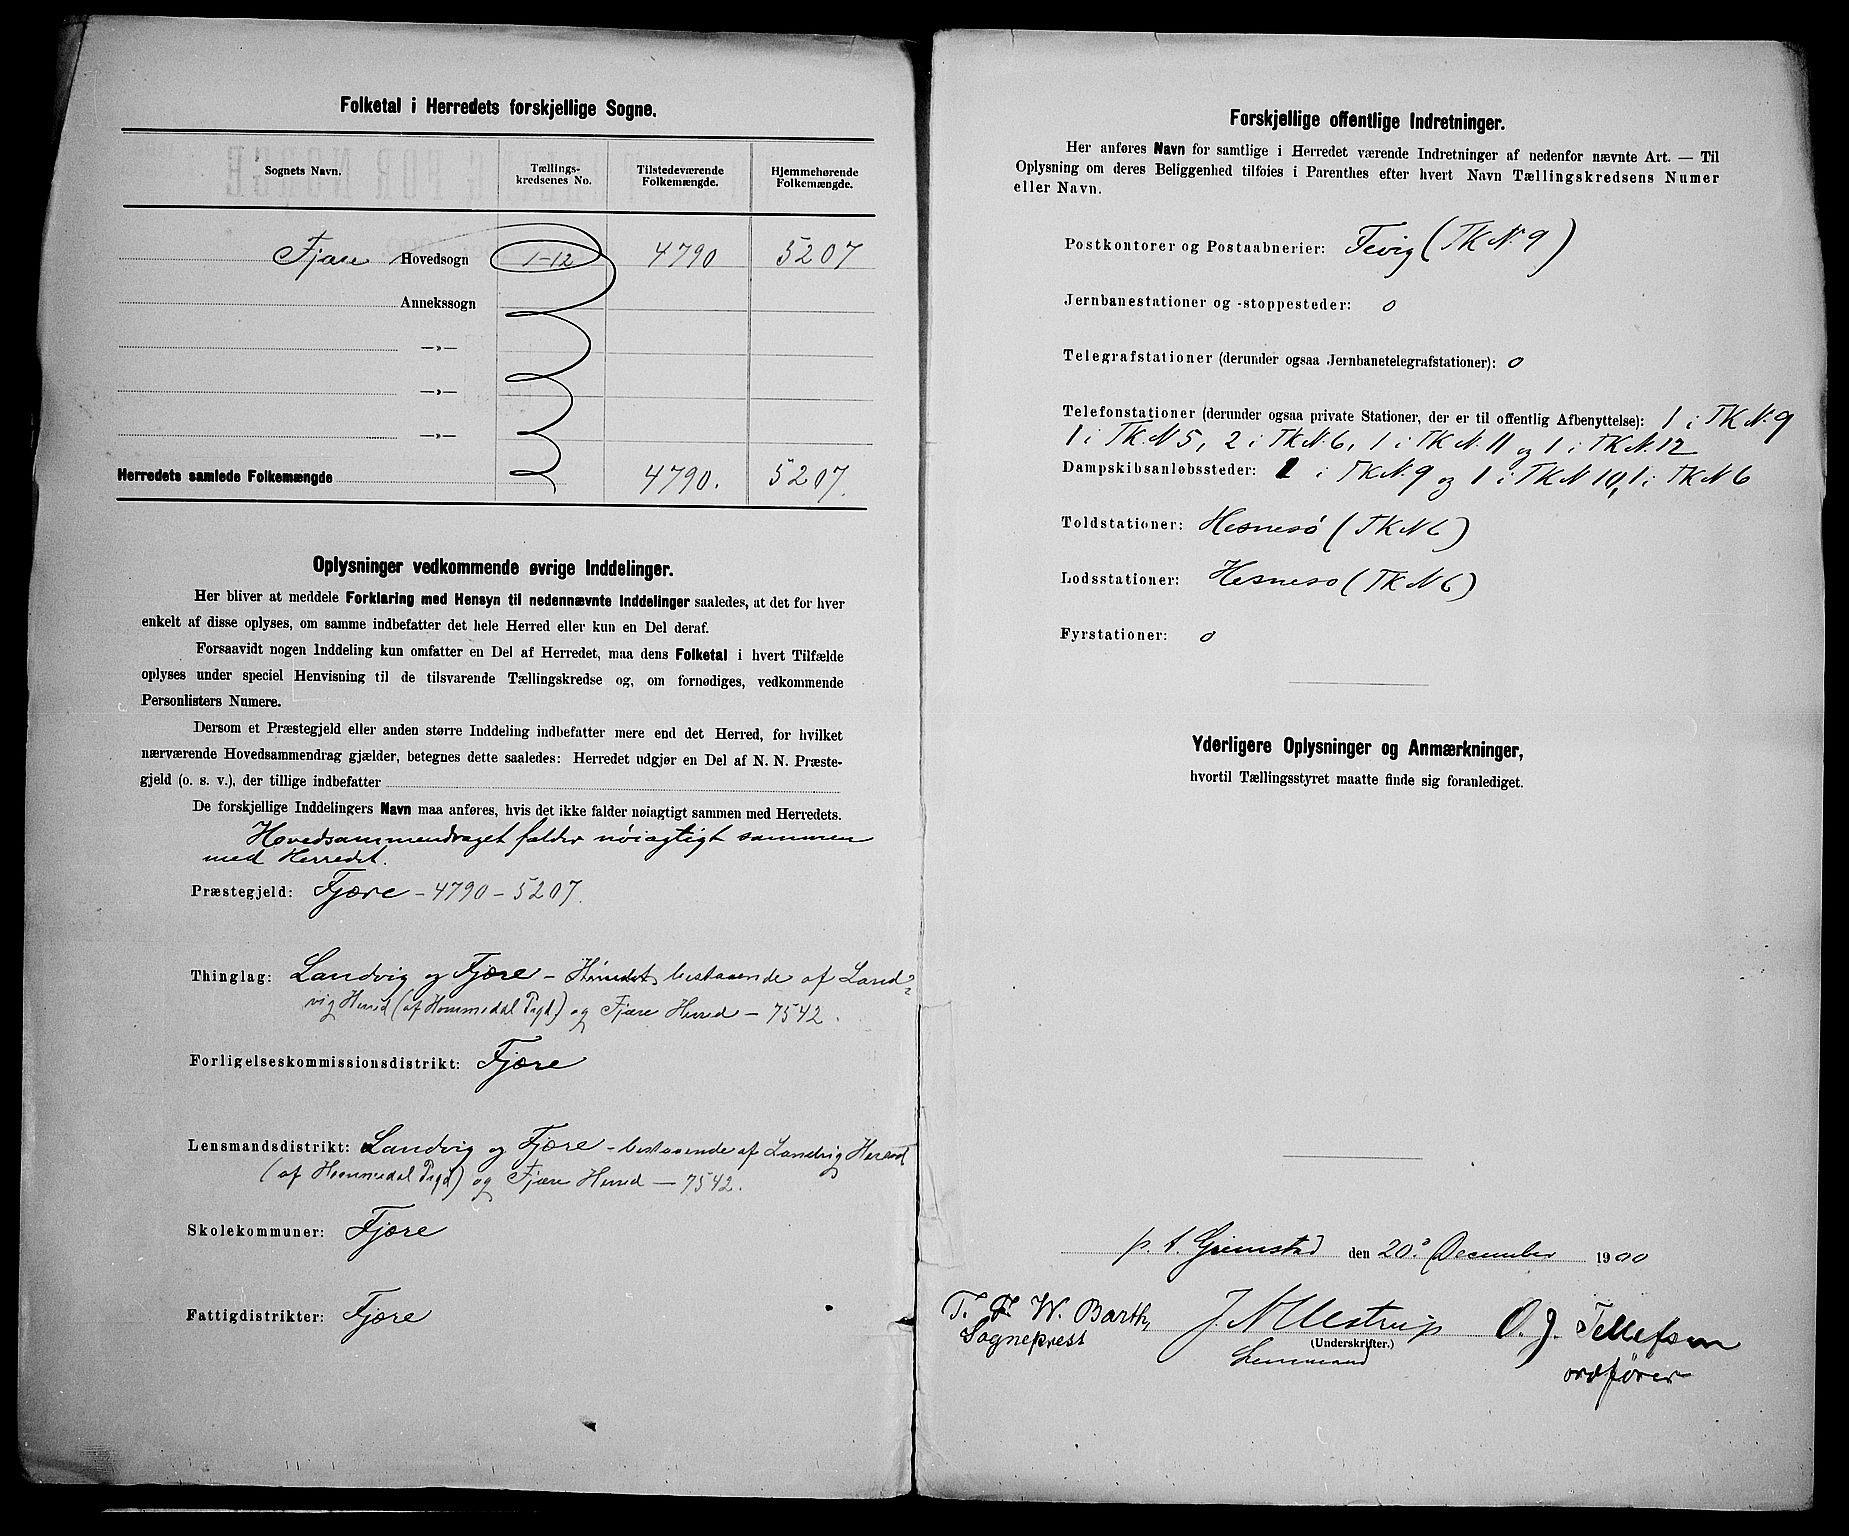 Folketal i Herredets forskjellige Sogne.
Sognets Navn. Tællings-kredsenes No. Tilstedeværende Folkemængde. Hjemmehørende Folkemængde.
Fjære Hovedsogn 1-12 4790 5207
Annekssogn
—»—
—»—
—»—
Herredets samlede Folkemængde 4790. 5207.
Oplysninger vedkommende øvrige Inddelinger.
Her bliver at meddele Forklaring med Hensyn til nedennævnte Inddelinger saaledes, at det for hver
enkelt af disse oplyses, om samme indbefatter det hele Herred eller kun en Del deraf.
Forsaavidt nogen Inddeling kun omfatter en Del af Herredet, maa dens Folketal i hvert Tilfælde
oplyses under speciel Henvisning til de tilsvarende Tællingskredse og, om fornødiges, vedkommende
Personlisters Numere.
Dersom et Præstegjeld eller anden større Inddeling indbefatter mere end det Herred, for hvilket
nærværende Hovedsammendrag gjælder, betegnes dette saaledes: Herredet udgjør en Del af N. N. Præste-
gjeld (o. s. v.), der tillige indbefatter
De forskjellige Inddelingers Navn maa anføres, hvis det ikke falder nøiagtigt sammen med Herredets.
Hovedsammendraget falder nöiagtigt sammen
med Herredet.
Præstegjeld: Fjære - 4790 - 5207.
Thinglag: Landvig og Fjære - bestaaende af Land-
vig Herred (af Hommedal Pgd) og Fjære Herred - 7542.
Forligelseskommissionsdistrikt: Fjære
Lensmandsdistrikt: Landvig og Fjære - bestaaende af Landvig Herred
(af Hommedal Pgd) og Fjære Herred - 7542.
Skolekommuner: Fjære
Fattigdistrikter: Fjære
Forskjellige offentlige Indretninger.
Her anføres Navn for samtlige i Herredet værende Indretninger af nedenfor nævnte Art. — Til
Oplysning om deres Beliggenhed tilføies i Parenthes efter hvert Navn Tællingskredsens Numer
eller Navn.
Postkontorer og Postaabnerier: Fevig (TK N. 9)
Jernbanestationer og -stoppesteder: 0
Telegrafstationer (derunder ogsaa Jernbanetelegrafstationer): 0
Telefonstationer (derunder ogsaa private Stationer, der er til offentlig Afbenyttelse): 1 i TK N. 9
1 i TK. N 5, 2 i TK N. 6, 1 i TK N. 11 og 1 i TK N. 12
Dampskibsanløbssteder: 1 i TK N. 9 og 1 i TK N 10, 1 i TK N 6
Toldstationer: Hesnesö (TK N 6)
Lodsstationer: Hesneso (TK N 6)
Fyrstationer: 0
Yderligere Oplysninger og Anmærkninger,
hvortil Tællingsstyret maatte finde sig foranlediget.
p. t. Grimstad den 20. December 1900
T. F. W. Barth, J. N Ulstrup O. J. Tellefsen
Sognepræst (Underskrifter.)
Lensmand ordfører